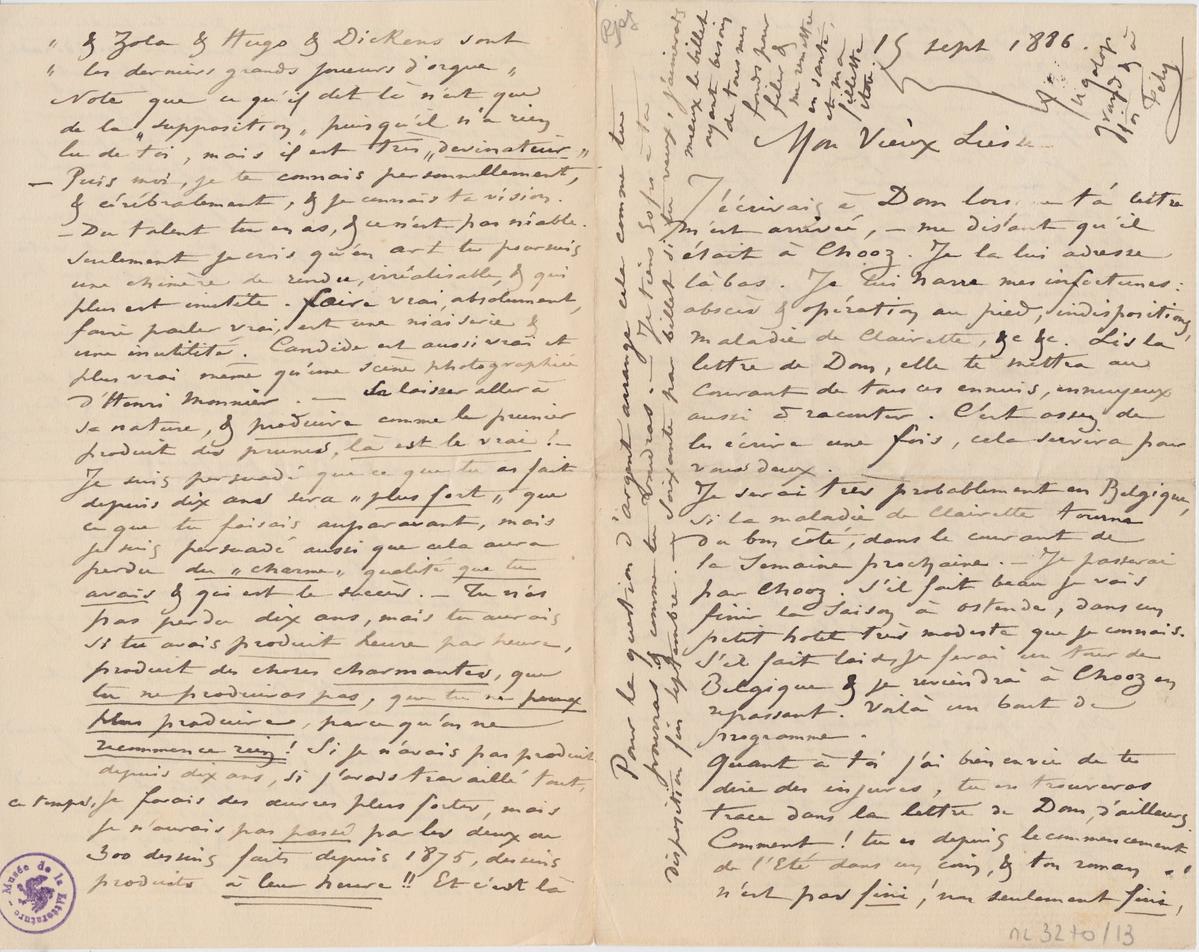 15 sept 1886.
Mon Vieux Lies
J'écrivais à Dom lors ta lettre
m'est arrivée, – me disant qu'il
était à Chooz. Je la lui adresse
là bas. Je lui narre mes infortunes:
abcès & opération au pied, indispositions,
maladie de Clairette, &c &c. Lis la
lettre de Dom, elle te mettra au
courant de tous ces ennuis, ennuyeux
aussi à raconter. C'est assez de
les écrire une fois, cela servira pour
vous deux.
Je serai très probablement en Belgique,
si la maladie de Clairette tourne
du bon côté, dans le courant de
la Semaine prochaine. – Je passerai
par Chooz. S'il fait beau je vais
finir la Saison à Ostende, dans un
petit hotel très modeste que je connais.
S'il fait laid, je ferai un tour de
Belgique & je reviendrai à Chooz en
repassant. Voilà un bout de
programme.
Quant à toi j'ai bien envie de te
dire des injures, tu en trouveras
trace dans la lettre de Dom, d'ailleurs
Comment! tu es depuis le commencement
de l'Eté dans un coin, & ton roman
n'est pas fini, non seulement fini,
" & Zola & Hugo & Dickens sont
" les derniers grands joueurs d'orgue "
Note que ce qu'il dit là n'est que
de la "supposition" puisqu'il n'a rien
lu de toi, mais il est très "devinateur"
– Puis moi, je te connais personnellement,
& cérébralement, & je connais ta vision.
– Du talent tu en as, & ce n'est pas niable.
Seulement je crois qu'en art tu poursuis
une chimère de rendu, irréalisable, & qui
plus est inutile. faire vrai, absolument,
faire parler vrai, est une niaiserie &
une inutilité. Candide est aussi vrai et
plus vrai même qu'une scène photographiée
d'Henri Monnier. – Se laisser aller à
sa nature, & produire comme le prunier
produit des prunes, là est le vrai! –
Je suis persuadé que ce que tu as fait
depuis dix ans sera "plus fort" que
ce que tu faisais auparavant, mais
je suis persuadé aussi que cela aura
perdu du "charme" qualité que tu
avais & qui est le succès. – Tu n'as
pas perdu dix ans, mais tu aurais
si tu avais produit heure par heure,
produit des choses charmantes, que
tu ne produiras pas, que tu ne peux
plus produire, parce qu'on ne
recommence rien! Si je n'avais pas produit
depuis dix ans, si j'avais travaillé tout
ce temps, je ferais des œuvres plus fortes, mais
je n'aurais pas passé par les deux ou
300 dessins faits depuis 1875, dessins
produits à leur heure!! Et c'est là
Pour la question d'argent arrange cela comme tu
pourras & comme tu voudras. – Je tiens 60 fs à ta
disposition fin septembre. – Soixante par billet si tu veux, j'aimerais
mieux le billet
ayant besoin
de tous mes
fonds pour
filer &
me remettre
en santé
et ma
fillette
itou.
au galop
à
toi
Fély
Musée de la Littérature